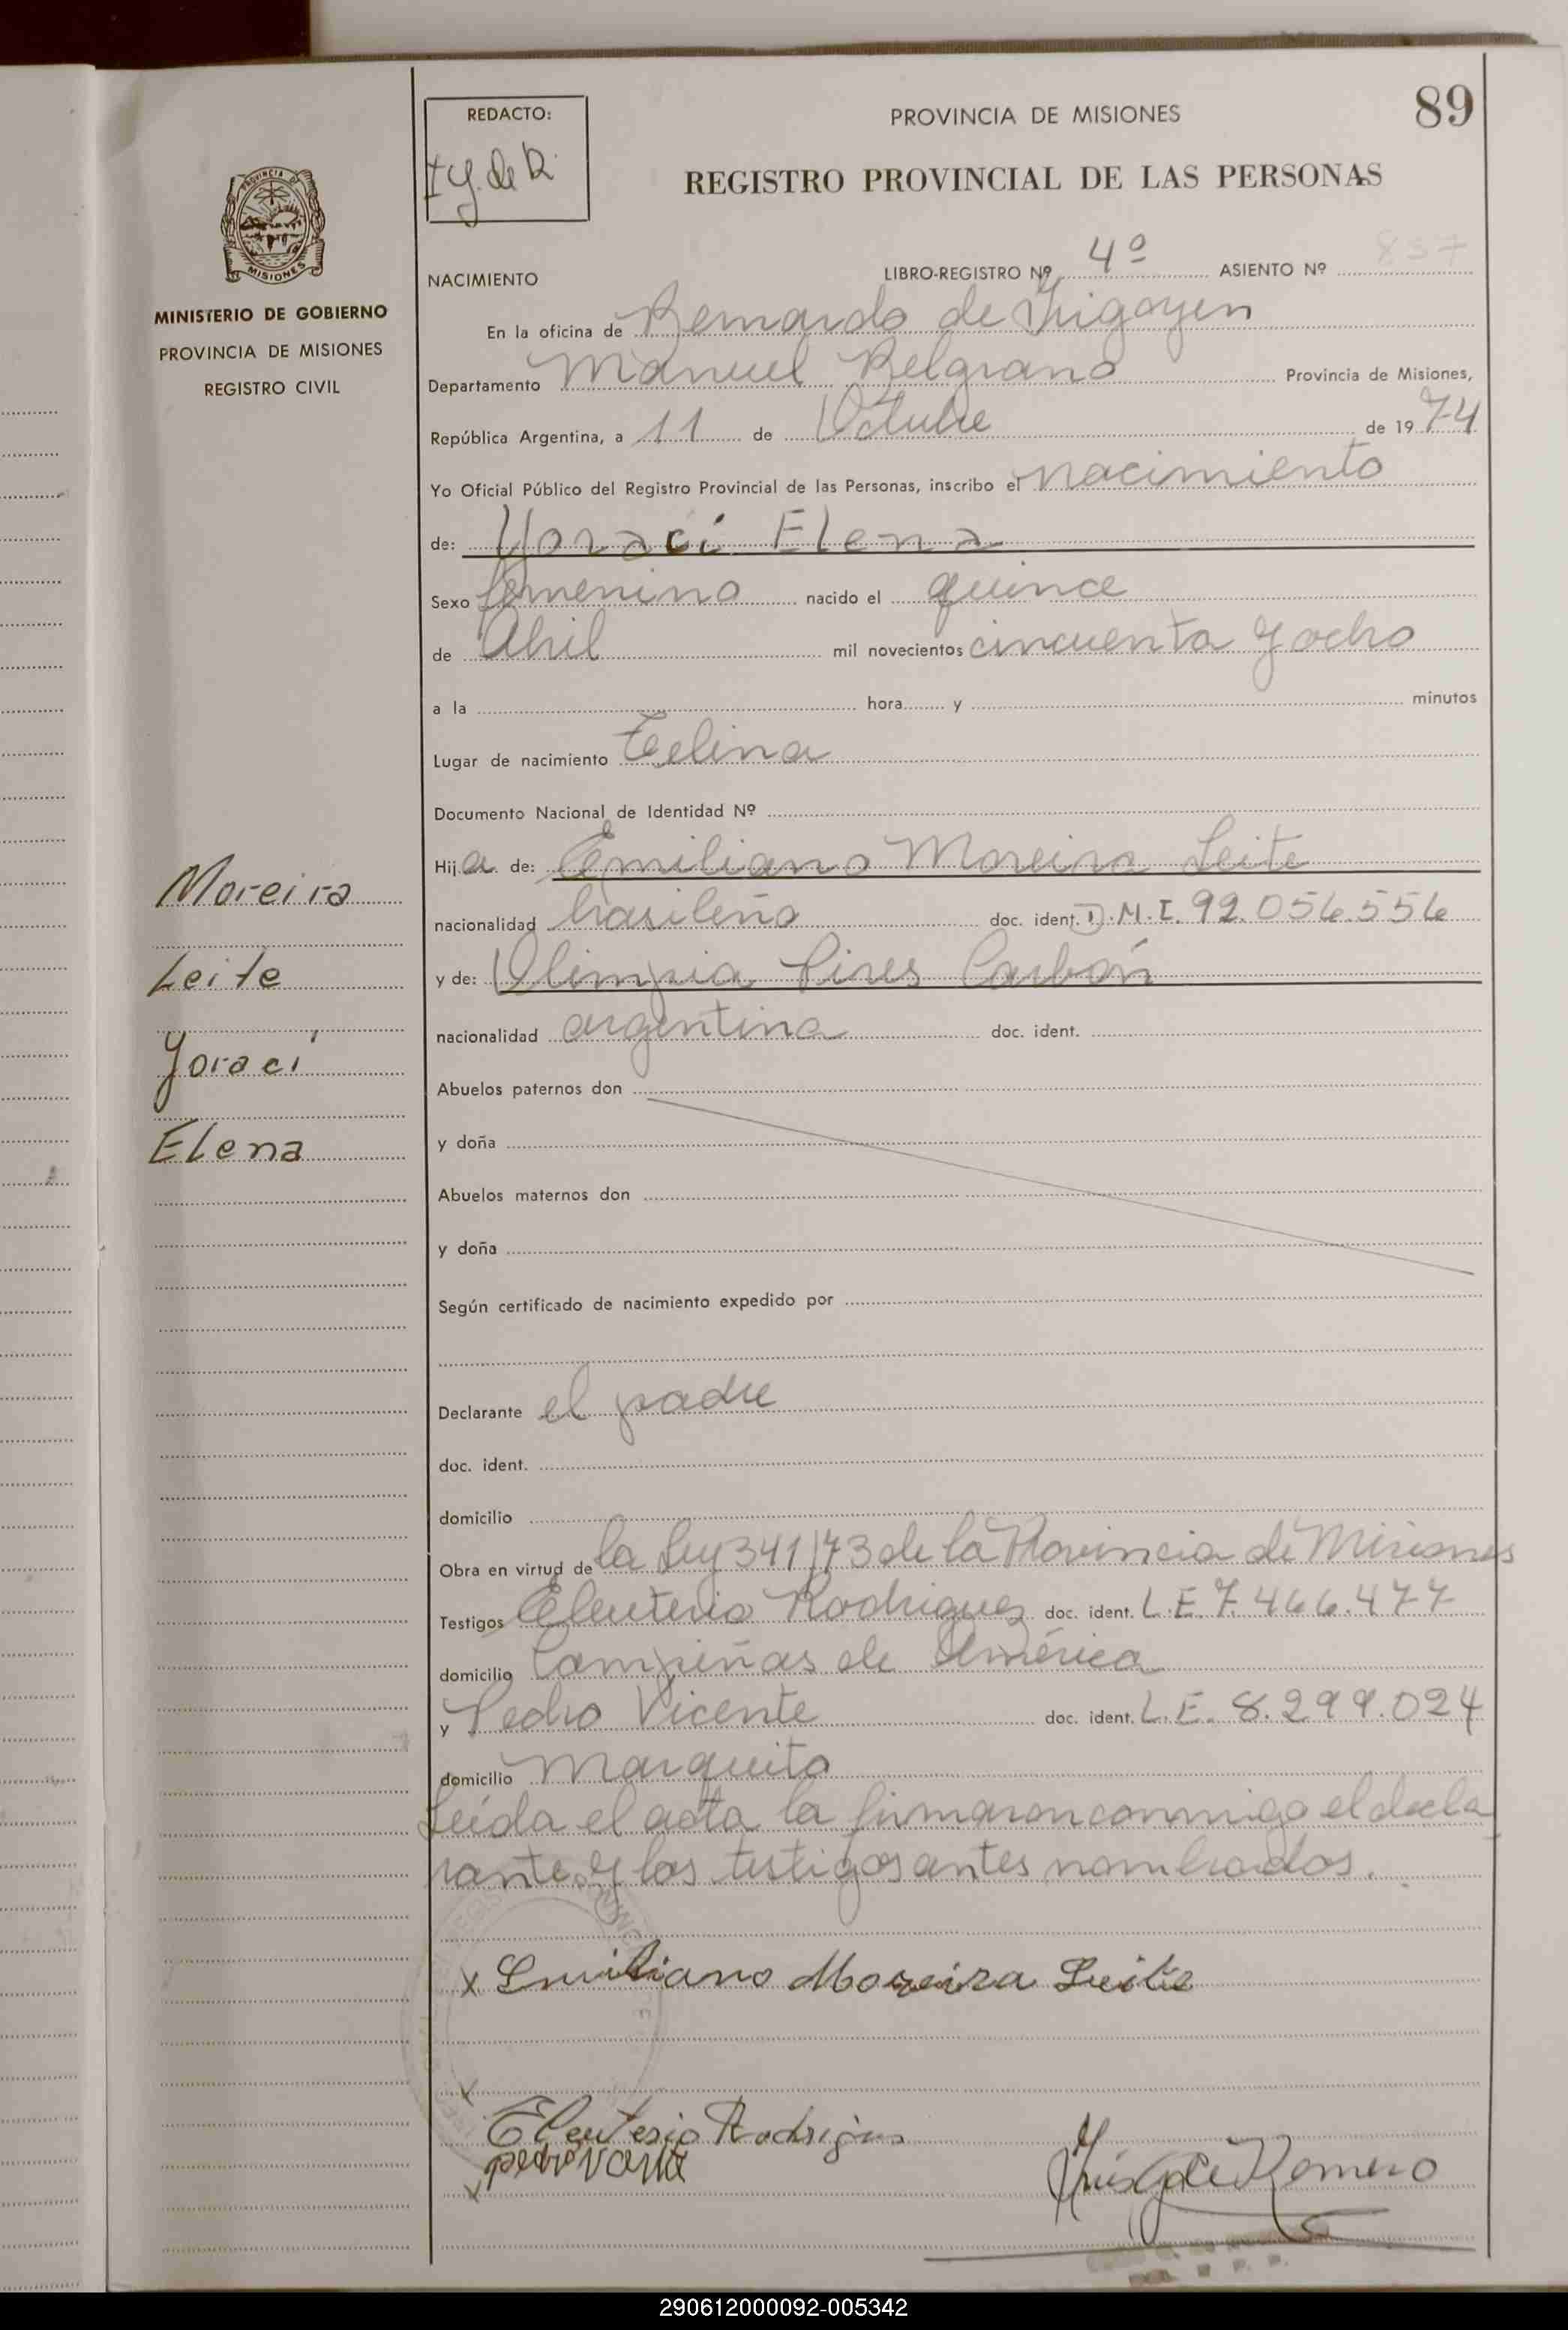 89
REDACTO:
I y. de R.
PROVINCIA DE MISIONES
REGISTRO PROVINCIAL DE LAS PERSONAS
PROVINCIA DE
MISIONES
MINISTERIO DE GOBIERNO
PROVINCIA DE MISIONES
REGISTRO CIVIL
NACIMIENTO LIBRO-REGISTRO Nº 4º ASIENTO Nº 857
En la oficina de Bernardo de Irigoyen
Departamento Manuel Belgrano Provincia de Misiones,
República Argentina, a 11 de Octubre de 19 74
Yo Oficial Público del Registro Provincial de las Personas, inscribo el nacimiento
de: Yoraci Elena
Sexo femenino nacido el quince
de Abril mil novecientos cincuenta y ocho
a la hora y minutos
Lugar de nacimiento
Documento Nacional de Identidad Nº
Hija de: Emiliano Moreira Leite
nacionalidad brasileño doc. ident. D.N.I. 92.056.556
y de: Olimpia Pires Carbón
nacionalidad argentina doc. ident.
Abuelos paternos don
y doña
Abuelos maternos don
y doña
Según certificado de nacimiento expedido por
Declarante el padre
doc. ident.
domicilio
Obra en virtud de la Ley 341/73 de la Provincia de Misiones
Testigos Eleuterio Rodriguez doc. ident. L.E. 7.466.477
domicilio Campiñas de América
y Pedro Vicente doc. ident. L.E. 8.299.024
domicilio Marquito
Leída el acta la firmaron conmigo el decla
rante y los testigos antes nombrados.
Moreira
Leite
Yoraci
Elena
x Emiliano Moreira Leite
x
Eleuterio Rodrigues
x
290612000092-005342